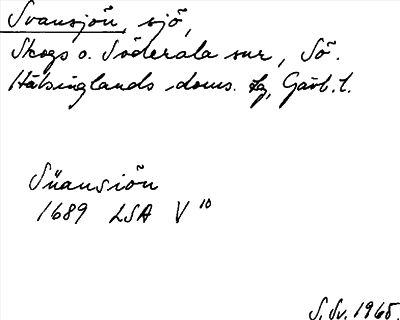 Svansjön, sjö,
Skogs o. Söderala snr, Sö.
Hälsinglands doms. lg, Gävl. l.
Süansiön
1689 LSA V¹⁰
S. Sv. 1965.